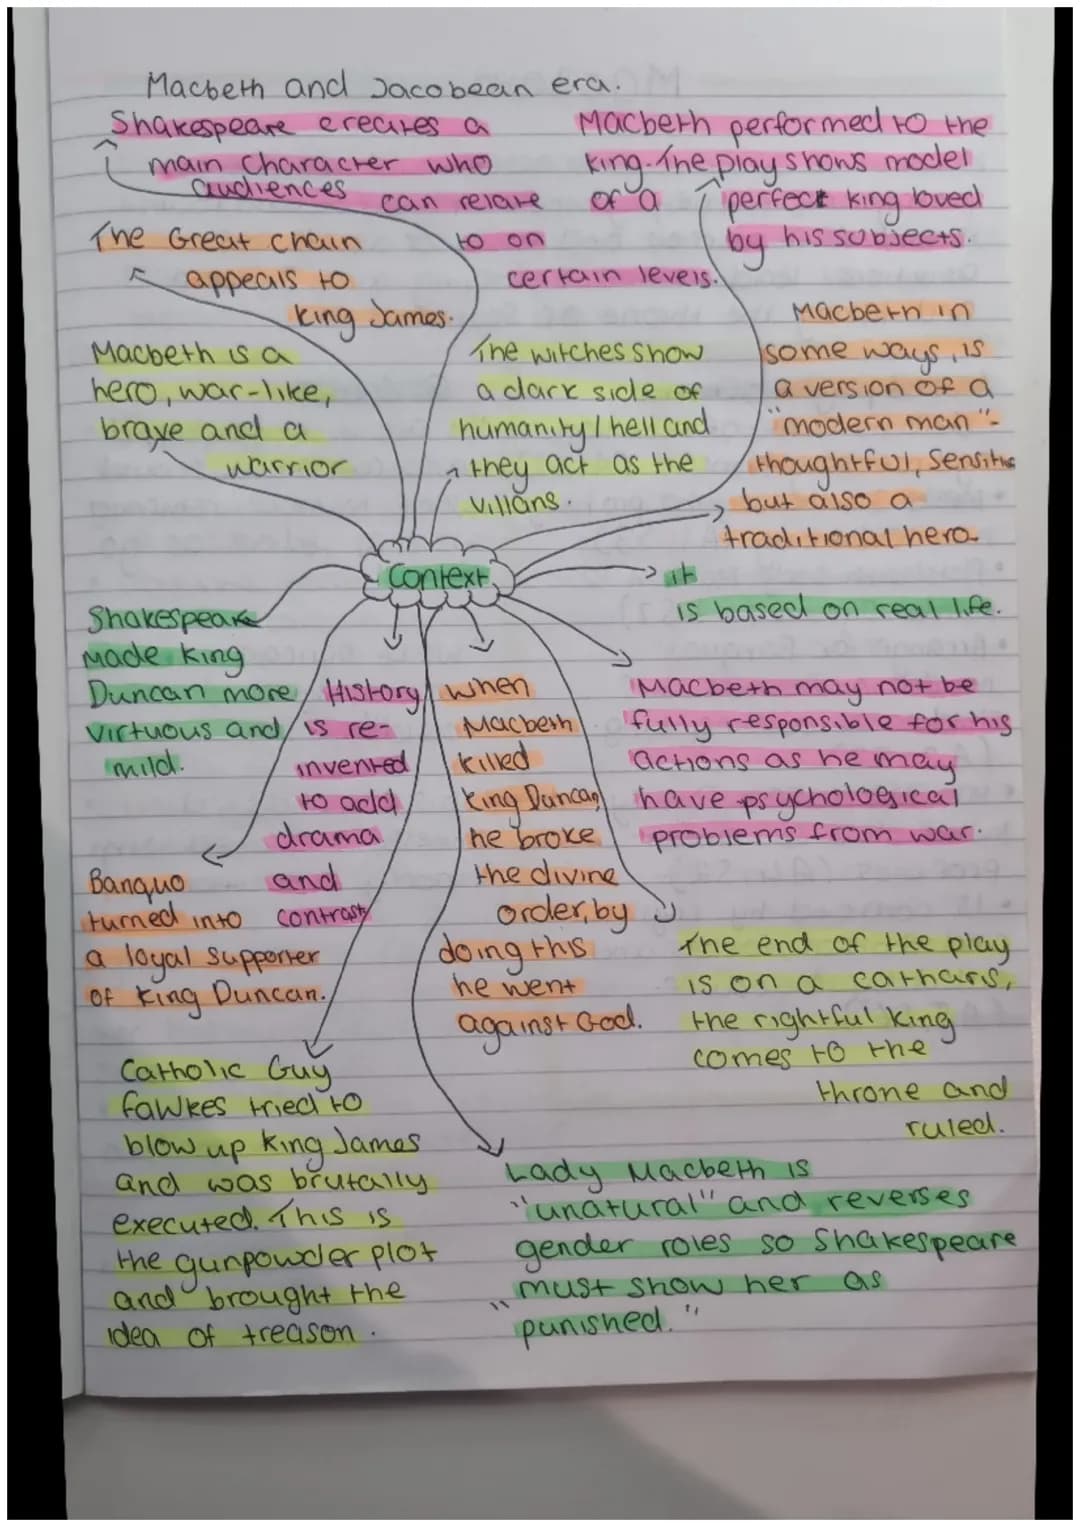 Macbeth and Jacobean era.
Shakespeare creates a
main character who
audiences
can relate
to on
certain levels.
Macbeth performed to the
king. The play shows model
of a perfect king loved
by his subjects.
The Great chain
appeals to
king James.
Macbeth is a
hero, war-like,
brave and a
warrior
The witches show
a dark side of
humanity / hell and
they act as the
villans.
Macbeth in
some ways, is
a version of a
"modern man"-
thoughtful, sensitive
but also a
traditional hero.
Context
it
is based on real life.
Shakespeare
made king
Duncan more
virtuous and
mild.
History
is re-
invented
to add
drama
and
contrast
when
Macbeth
killed
King Duncan,
he broke
the divine
order, by
doing this
he went
against God.
Macbeth may not be
fully responsible for his
actions as he may
have psychological
problems from war.
Banquo
turned into
a loyal supporter
of king Duncan.
The end of the play
is on a catharis,
the rightful king
comes to the
throne and
ruled.
Catholic Guy
fawkes tried to
blow up king James
and was brutally
executed. This is
the gunpowder plot
and brought the
idea of treason.
Lady Macbeth is
"unatural" and reverses
gender roles so Shakespeare
must show her as
"punished."